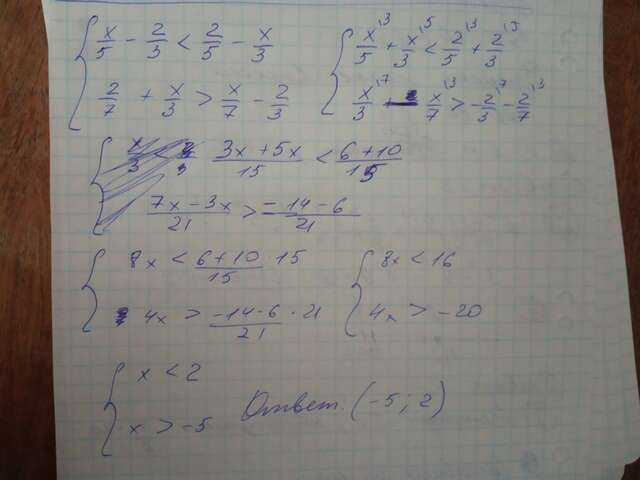 x/5 − 2/3 < 2/5 − x/3
2/7 + x/3 > x/7 − 2/3
x/5 \3 + x/3 \5 < 2/5 \3 + 2/3 \5
x/3 \7 − x/7 \3 > −2/3 \7 − 2/7 \3
(3x + 5x)/15 < (6 + 10)/15
(7x − 3x)/21 > (−14 − 6)/21
8x < (6+10)/15 · 15
4x > (−14−6)/21 · 21
8x < 16
4x > −20
x < 2
x > −5
Ответ: (−5; 2)